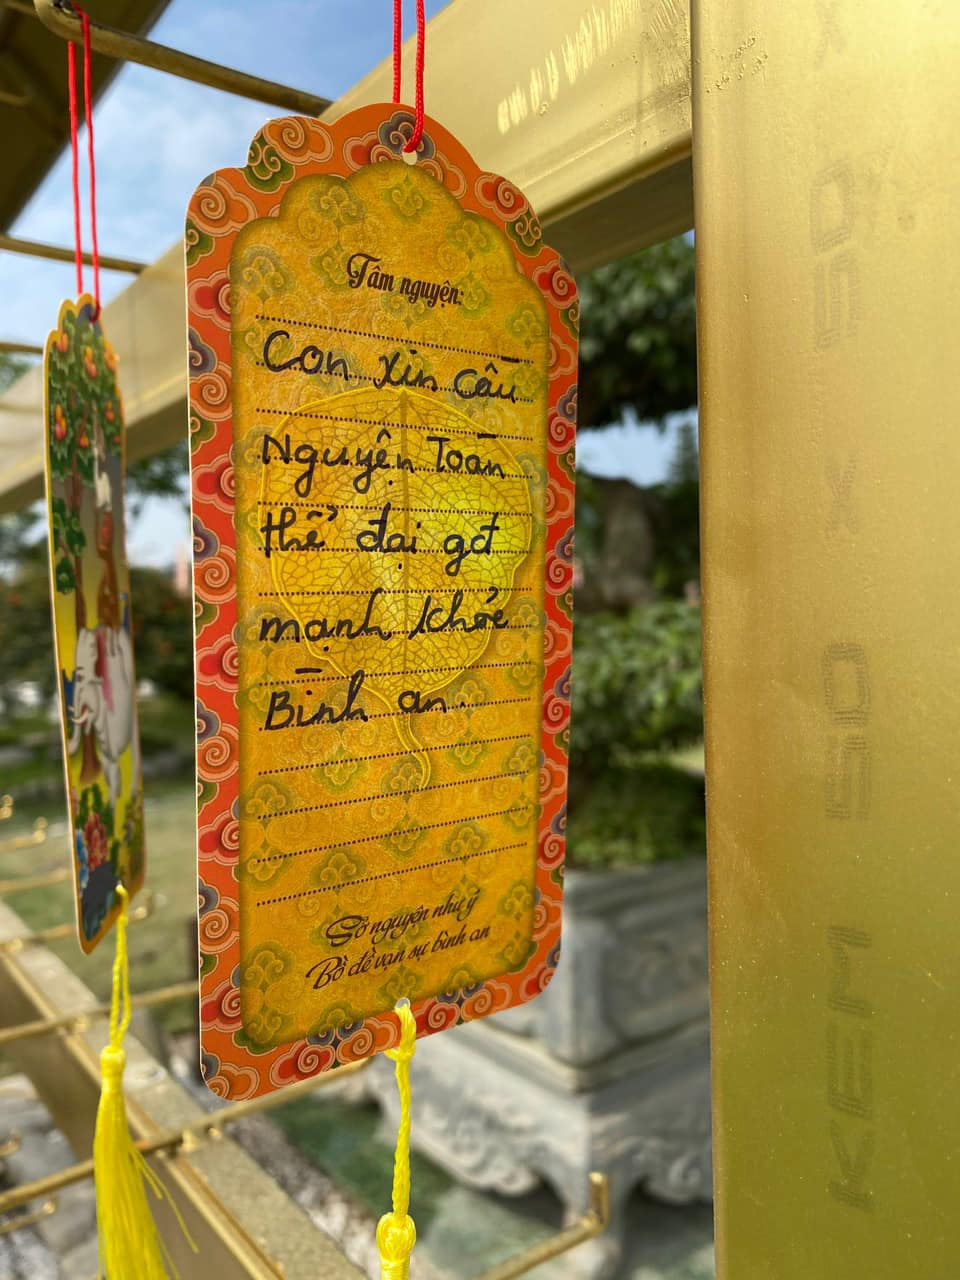 Tâm nguyện:
Con xin cầu
Nguyện Toàn
thể đại gđ
mạnh khỏe
Bình an.
Sở nguyện như ý
Bồ đề vạn sự bình an
KEM 50 X 50 X